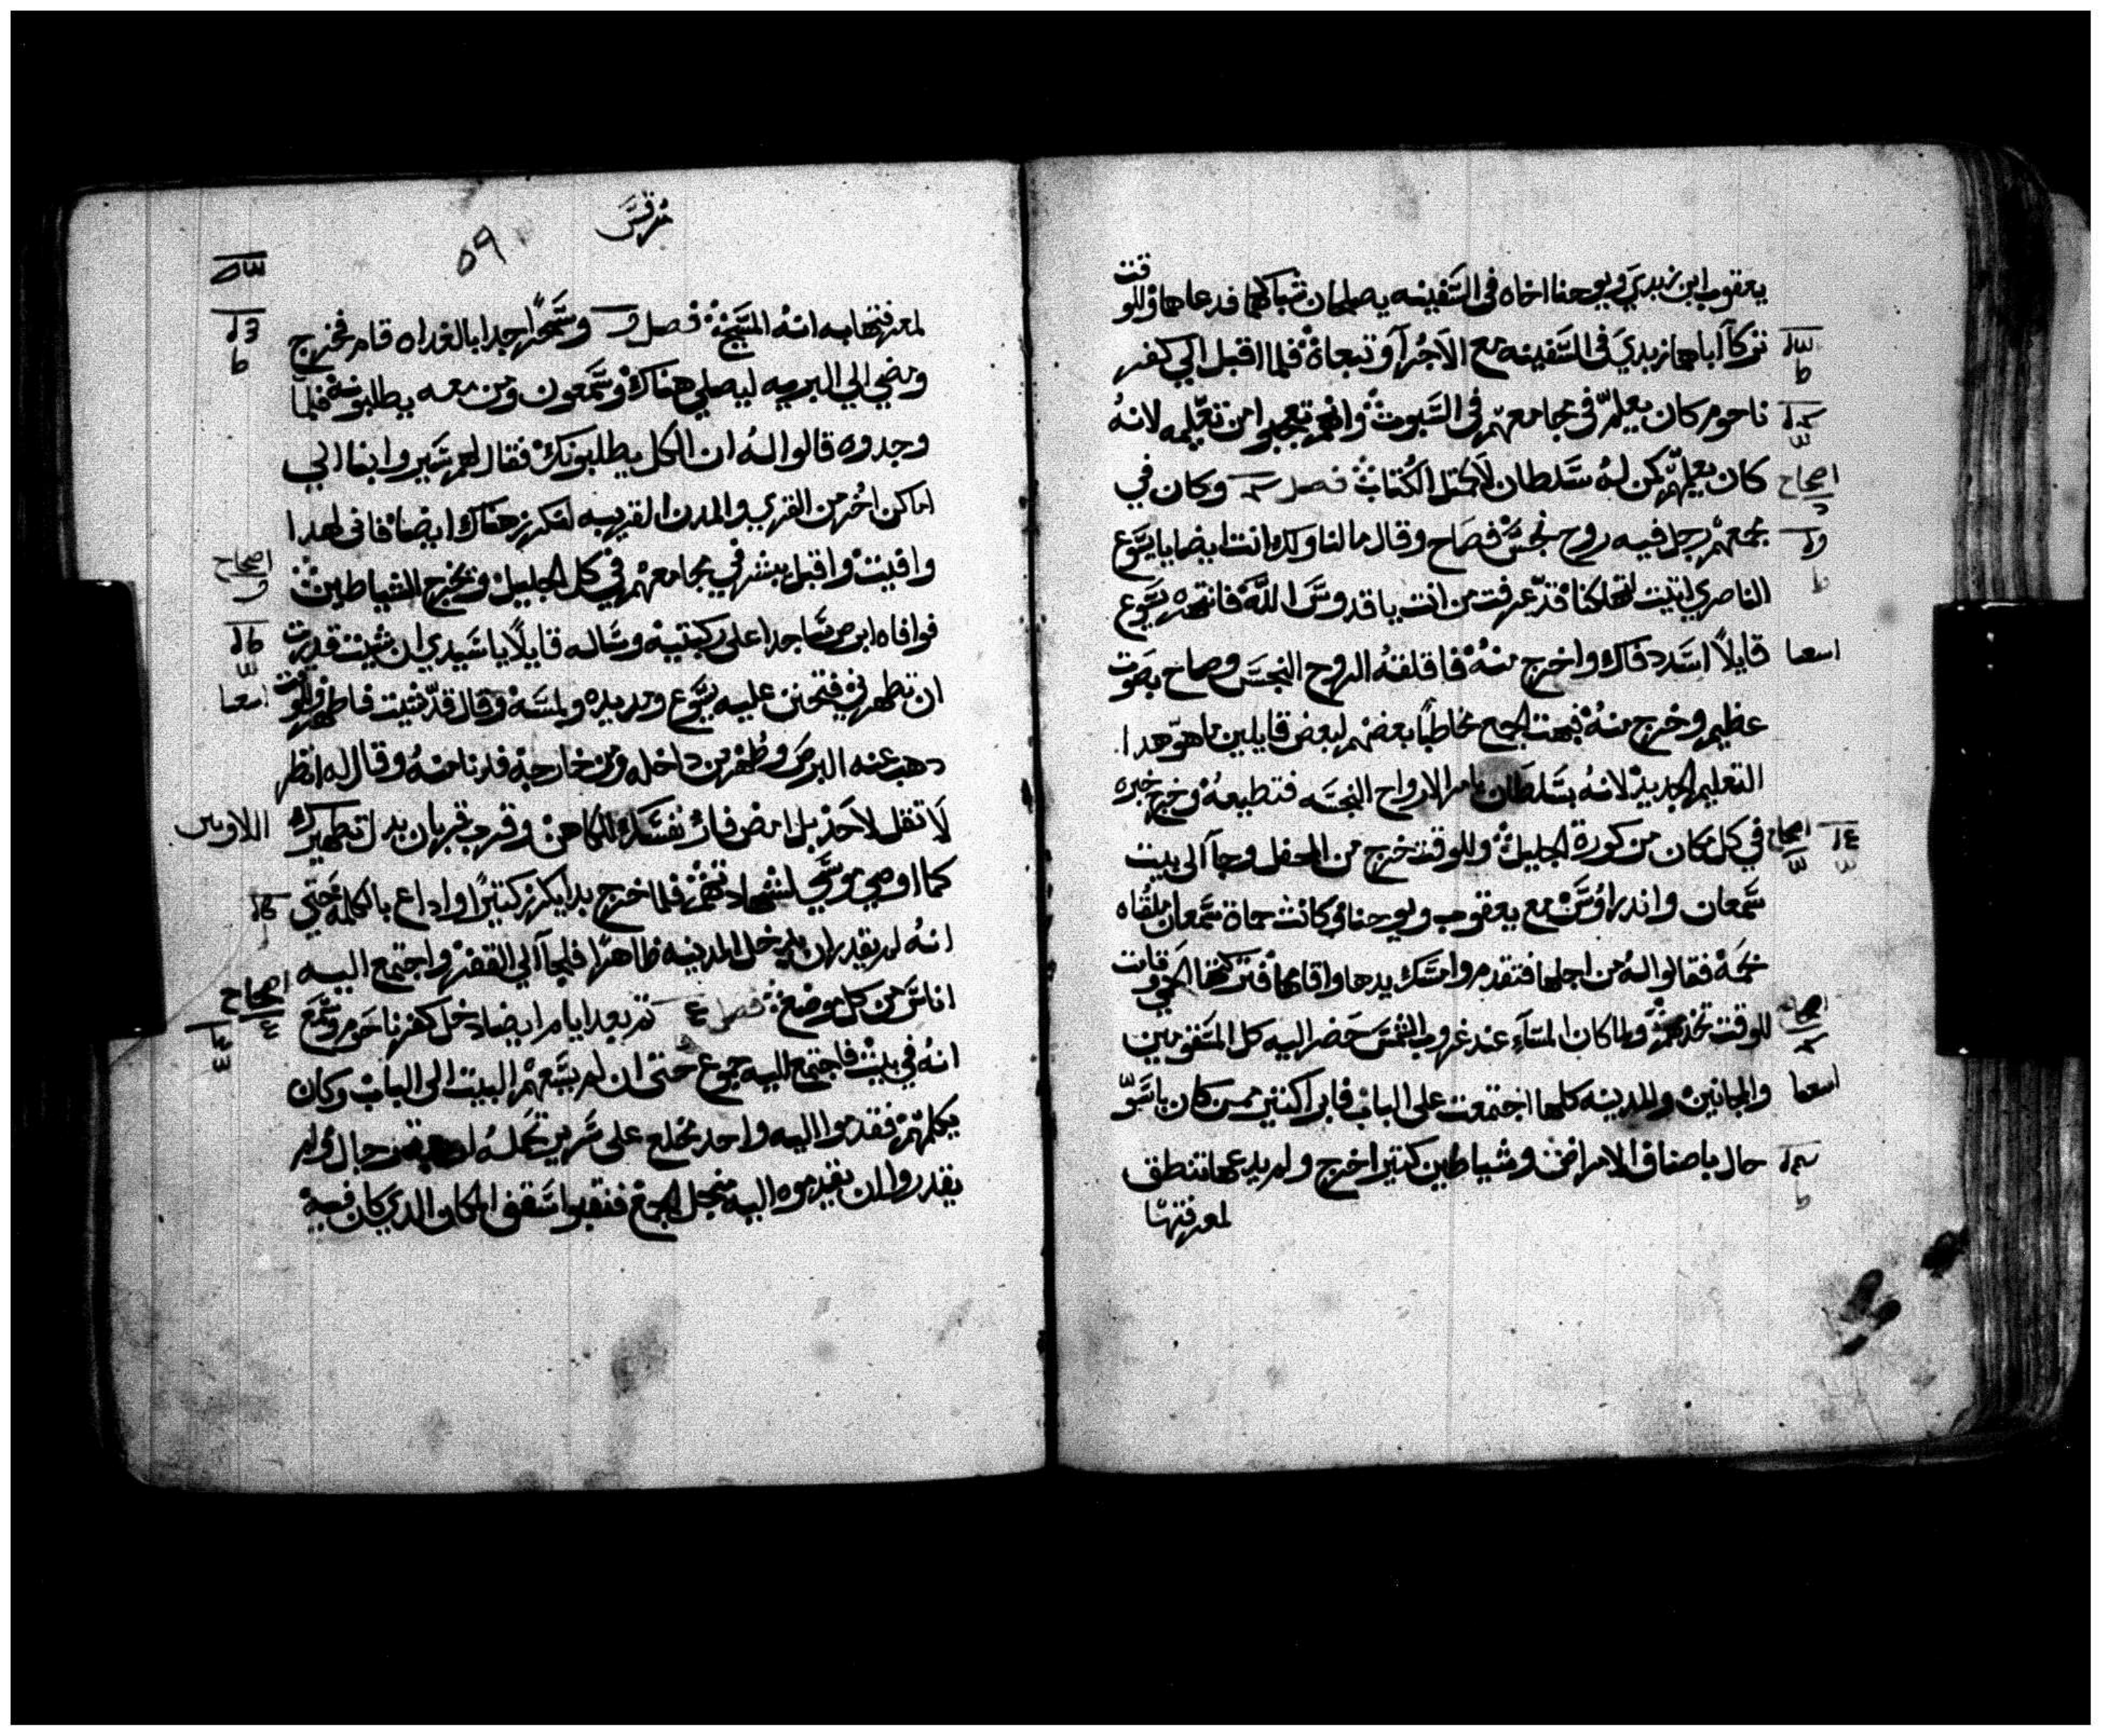 يعقوب ابن زبدي ويوحنا اخاه في السفينه يصلحان شباكهما فدعاهما وللوقت
تركا اباهما زبدي في السفينه مع الاجرآ وتبعاه فلما اقبل الي كفر
ناحوم كان يعلم في مجامعهم في السبوت وانهم تعجبوا من تعليمه لانه
كان يعلمهم كمن له سلطان لا كمثل الكتاب فصل وكان في
مجمعهم رجل فيه روح نجس فصاح وقال ما لنا ولك انت ايضا يا يسوع
الناصري اتيت لتهلكنا قد عرفت من انت يا قدوس الله فانتهره يسوع
قايلاً اسدد فاك واخرج منه فاقلقته الروح النجس وصاح بصوت
عظيم وخرج منه فبهت الجمع مخاطباً بعضهم لبعض قايلين ما هو هدا
التعليم الجديد لانه بسلطان يامر الارواح النجسه فتطيعه وخرج خبره
في كل مكان من كورة الجليل وللوقت خرج من المحفل وجآ الى بيت
سمعان واندراوس مع يعقوب ويوحنا وكانت حماة سمعان ملقاه
بحمه فقالوا له من اجلها فتقدم وامسك يدها واقامها فتركتها الحمي وقامت
للوقت تخدمهم ولما كان المسآء عند غروب الشمس حضر اليه كل المتضررين
والمجانين والمدينه كلها اجتمعت على الباب فابرا كتيرين ممن كان باسوّ
حال باصناف الامراض وشياطين كتير اخرج ولم يدعها تنطق
لمعرفتها
اصحاح
اسعيا
اصحاح
اصحاح
اسعيا
مرقس
٥٩
لمعرفتها به انه المسيح فصل وسحراً جدا بالغداه قام فخرج
ومضي الي البريه ليصلي هناك وسمعون ومن معه يطلبونه فلما
وجدوه قالوا له ان الكل يطلبونك فقال لهم سيروا بنا الي
اماكن اخر من القري والمدن القريبه لنكرز هناك ايضا فاني لهدا
وافيت واقبل يبشر في مجامعهم في كل الجليل ويخرج الشياطين
فوافاه ابرص ساجدا على ركبتيه وساله قايلاً يا سيدي ان شيت قدرت
ان تطهرني فتحنن عليه يسوع ومد يده ولمسه وقال قد شيت فاطهر وللوقت
دهب عنه البرص وطهر من داخله ومن خارجه فدنا منه وقال له انظر
لا تقل لاحد بل امض فار نفسك للكاهن وقرب قربان بدل تطهيرك
كما اوصي موسي لشهادتهم فلما خرج بدا يكرز كتيرًا واداع بالكلمه حتي
انه لم يقدر ان يدخل المدينه ظاهرًا فلجا الي القفر واجتمع اليه
اناس من كل موضع فصل ٤ تم بعد ايام ايضا دخل كفرناحوم وسمع
انه في بيت فاجتمع اليه جموع حتى ان لم يسعهم البيت الى الباب وكان
يكلمهم فقدموا اليه واحد مخلع على سرير تحمله اربعة رجال ولم
يقدروا ان يقدموه اليه من اجل الجمع فنقبوا سقف المكان الدي كان فيه
اصحاح
اسعيا
اللاويين
اصحاح
٤